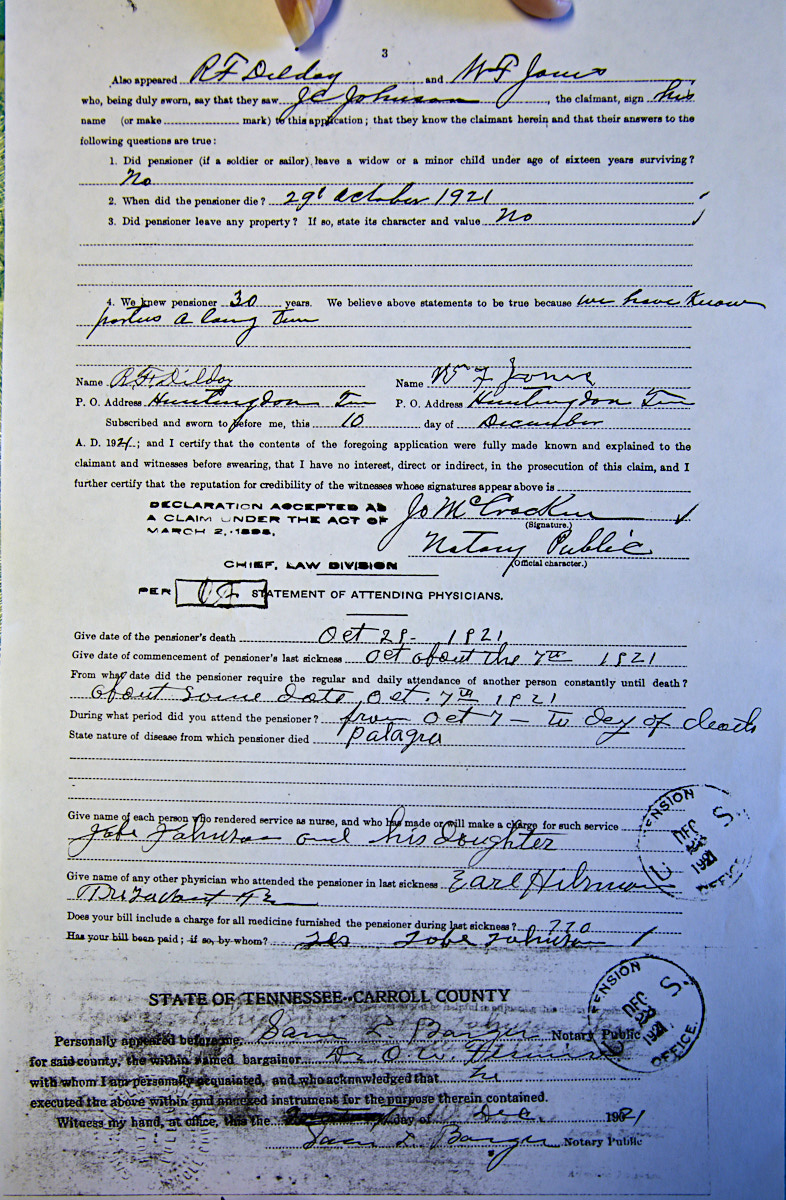 3
Also appeared R F Dilday and W F Jones
who, being duly sworn, say that they saw J C Johnson, the claimant, sign his
name (or make mark) to this application; that they know the claimant herein and that their answers to the
following questions are true:
1. Did pensioner (if a soldier or sailor) leave a widow or a minor child under age of sixteen years surviving?
No
2. When did the pensioner die? 29 October 1921
3. Did pensioner leave any property? If so, state its character and value No
4. We knew pensioner 30 years. We believe above statements to be true because we have Know
parties a long time
Name R. F. Dilday Name Wm F Jones
P. O. Address Huntingdon Tn P. O. Address Huntingdon Tn
Subscribed and sworn to before me, this 10 day of December
A. D. 1921; and I certify that the contents of the foregoing application were fully made known and explained to the
claimant and witnesses before swearing, that I have no interest, direct or indirect, in the prosecution of this claim, and I
further certify that the reputation for credibility of the witnesses whose signatures appear above is
DECLARATION ACCEPTED AS
A CLAIM UNDER THE ACT OF
MARCH 2, 1895.
Jo McCracken
(Signature.)
Notary Public
(Official character.)
CHIEF, LAW DIVISION
PER
STATEMENT OF ATTENDING PHYSICIANS.
Give date of the pensioner's death Oct 29- 1921
Give date of commencement of pensioner's last sickness Oct about the 7th 1921
From what date did the pensioner require the regular and daily attendance of another person constantly until death?
about same date Oct. 7th 1921
During what period did you attend the pensioner? from Oct 7 - to day of death
State nature of disease from which pensioner died palagra
Give name of each person who rendered service as nurse, and who has made or will make a charge for such service
Johnson and his daughter
Give name of any other physician who attended the pensioner in last sickness Earl
Does your bill include a charge for all medicine furnished the pensioner during last sickness?
Has your bill been paid; if so, by whom? Yes Johnson
PENSION OFFICE
DEC
1921
U S
STATE OF TENNESSEE--CARROLL COUNTY
PENSION OFFICE
DEC
1921
U S
Personally appeared before me, Sam L Barger Notary Public
for said county, the within named bargainor Dr. O. W.
with whom I am personally acquainted, and who acknowledged that he
executed the above within and annexed instrument for the purpose therein contained.
Witness my hand, at office, this the day of Dec 1921
Sam L Barger Notary Public